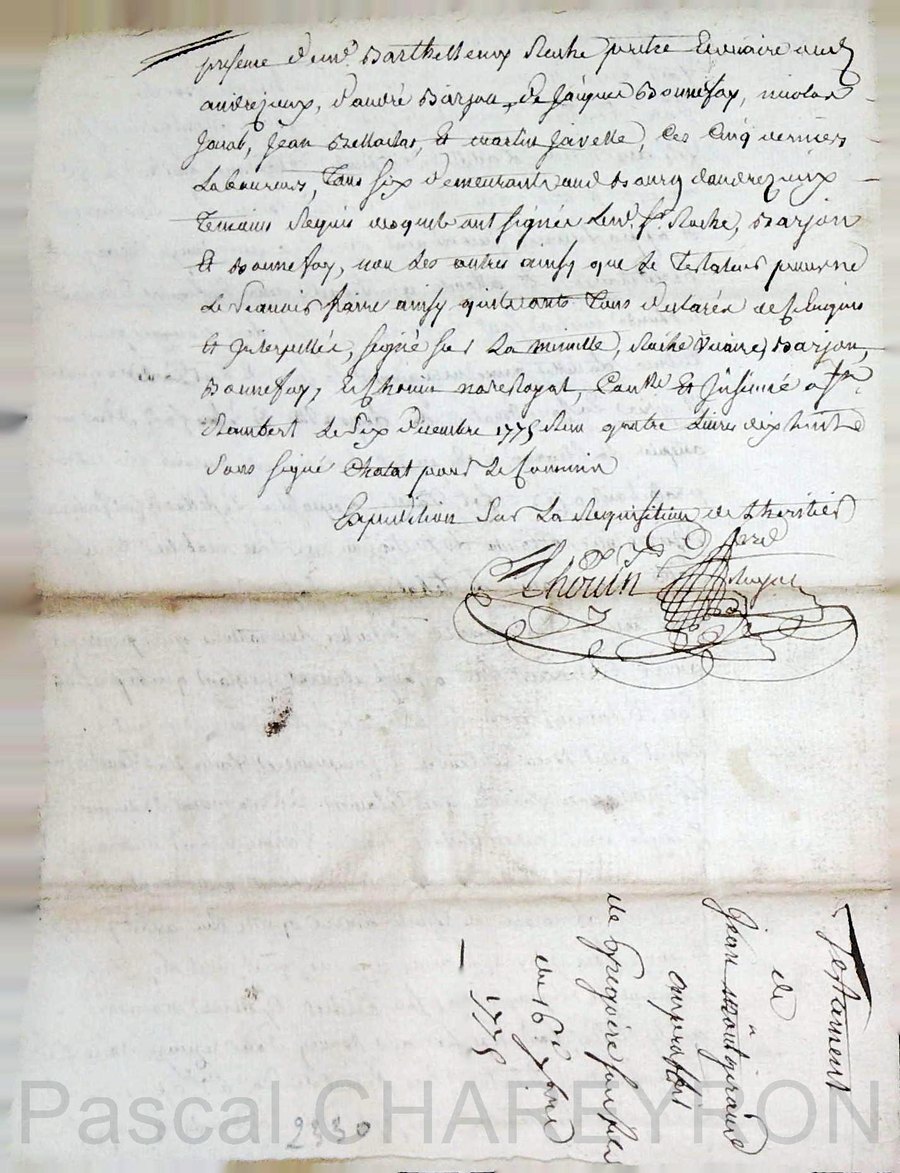 presence d'em.e Barthellemy Roche pretre vicaire aud
andrezieux, d'andré Barjon, de Jacques Bonnefoy, nicolas
Jean et martin Javelle, ces cinq derniers
Laboureurs, Tous six demeurants aud Bourg dandrezieux
Temoins Requis lesquels ont signés led. Sr. Roche, Barjon
et Bonnefoy, non Les autres ainsy que Le Testateur pour ne
Le Scavoir faire ainsy quils ont Tous declaré de ce Enquis
et Interpellés, signé sur La minutte, Roche vicaire, Barjon,
Bonnefoy, et Thouin nore Royal, Conllé et Insinué a St.
Rambert Le Six decembre 1775 Reçu quatre Livres dix huit
Sous signé Chatat pour Le Commis
Expedition Sur La Requisition de Lheritier
Thouin
Royal
Testament
de
Jean montgiraud
au proffit
de gregoire son fils
du 16e
1775
2330
Pascal CHAREYRON